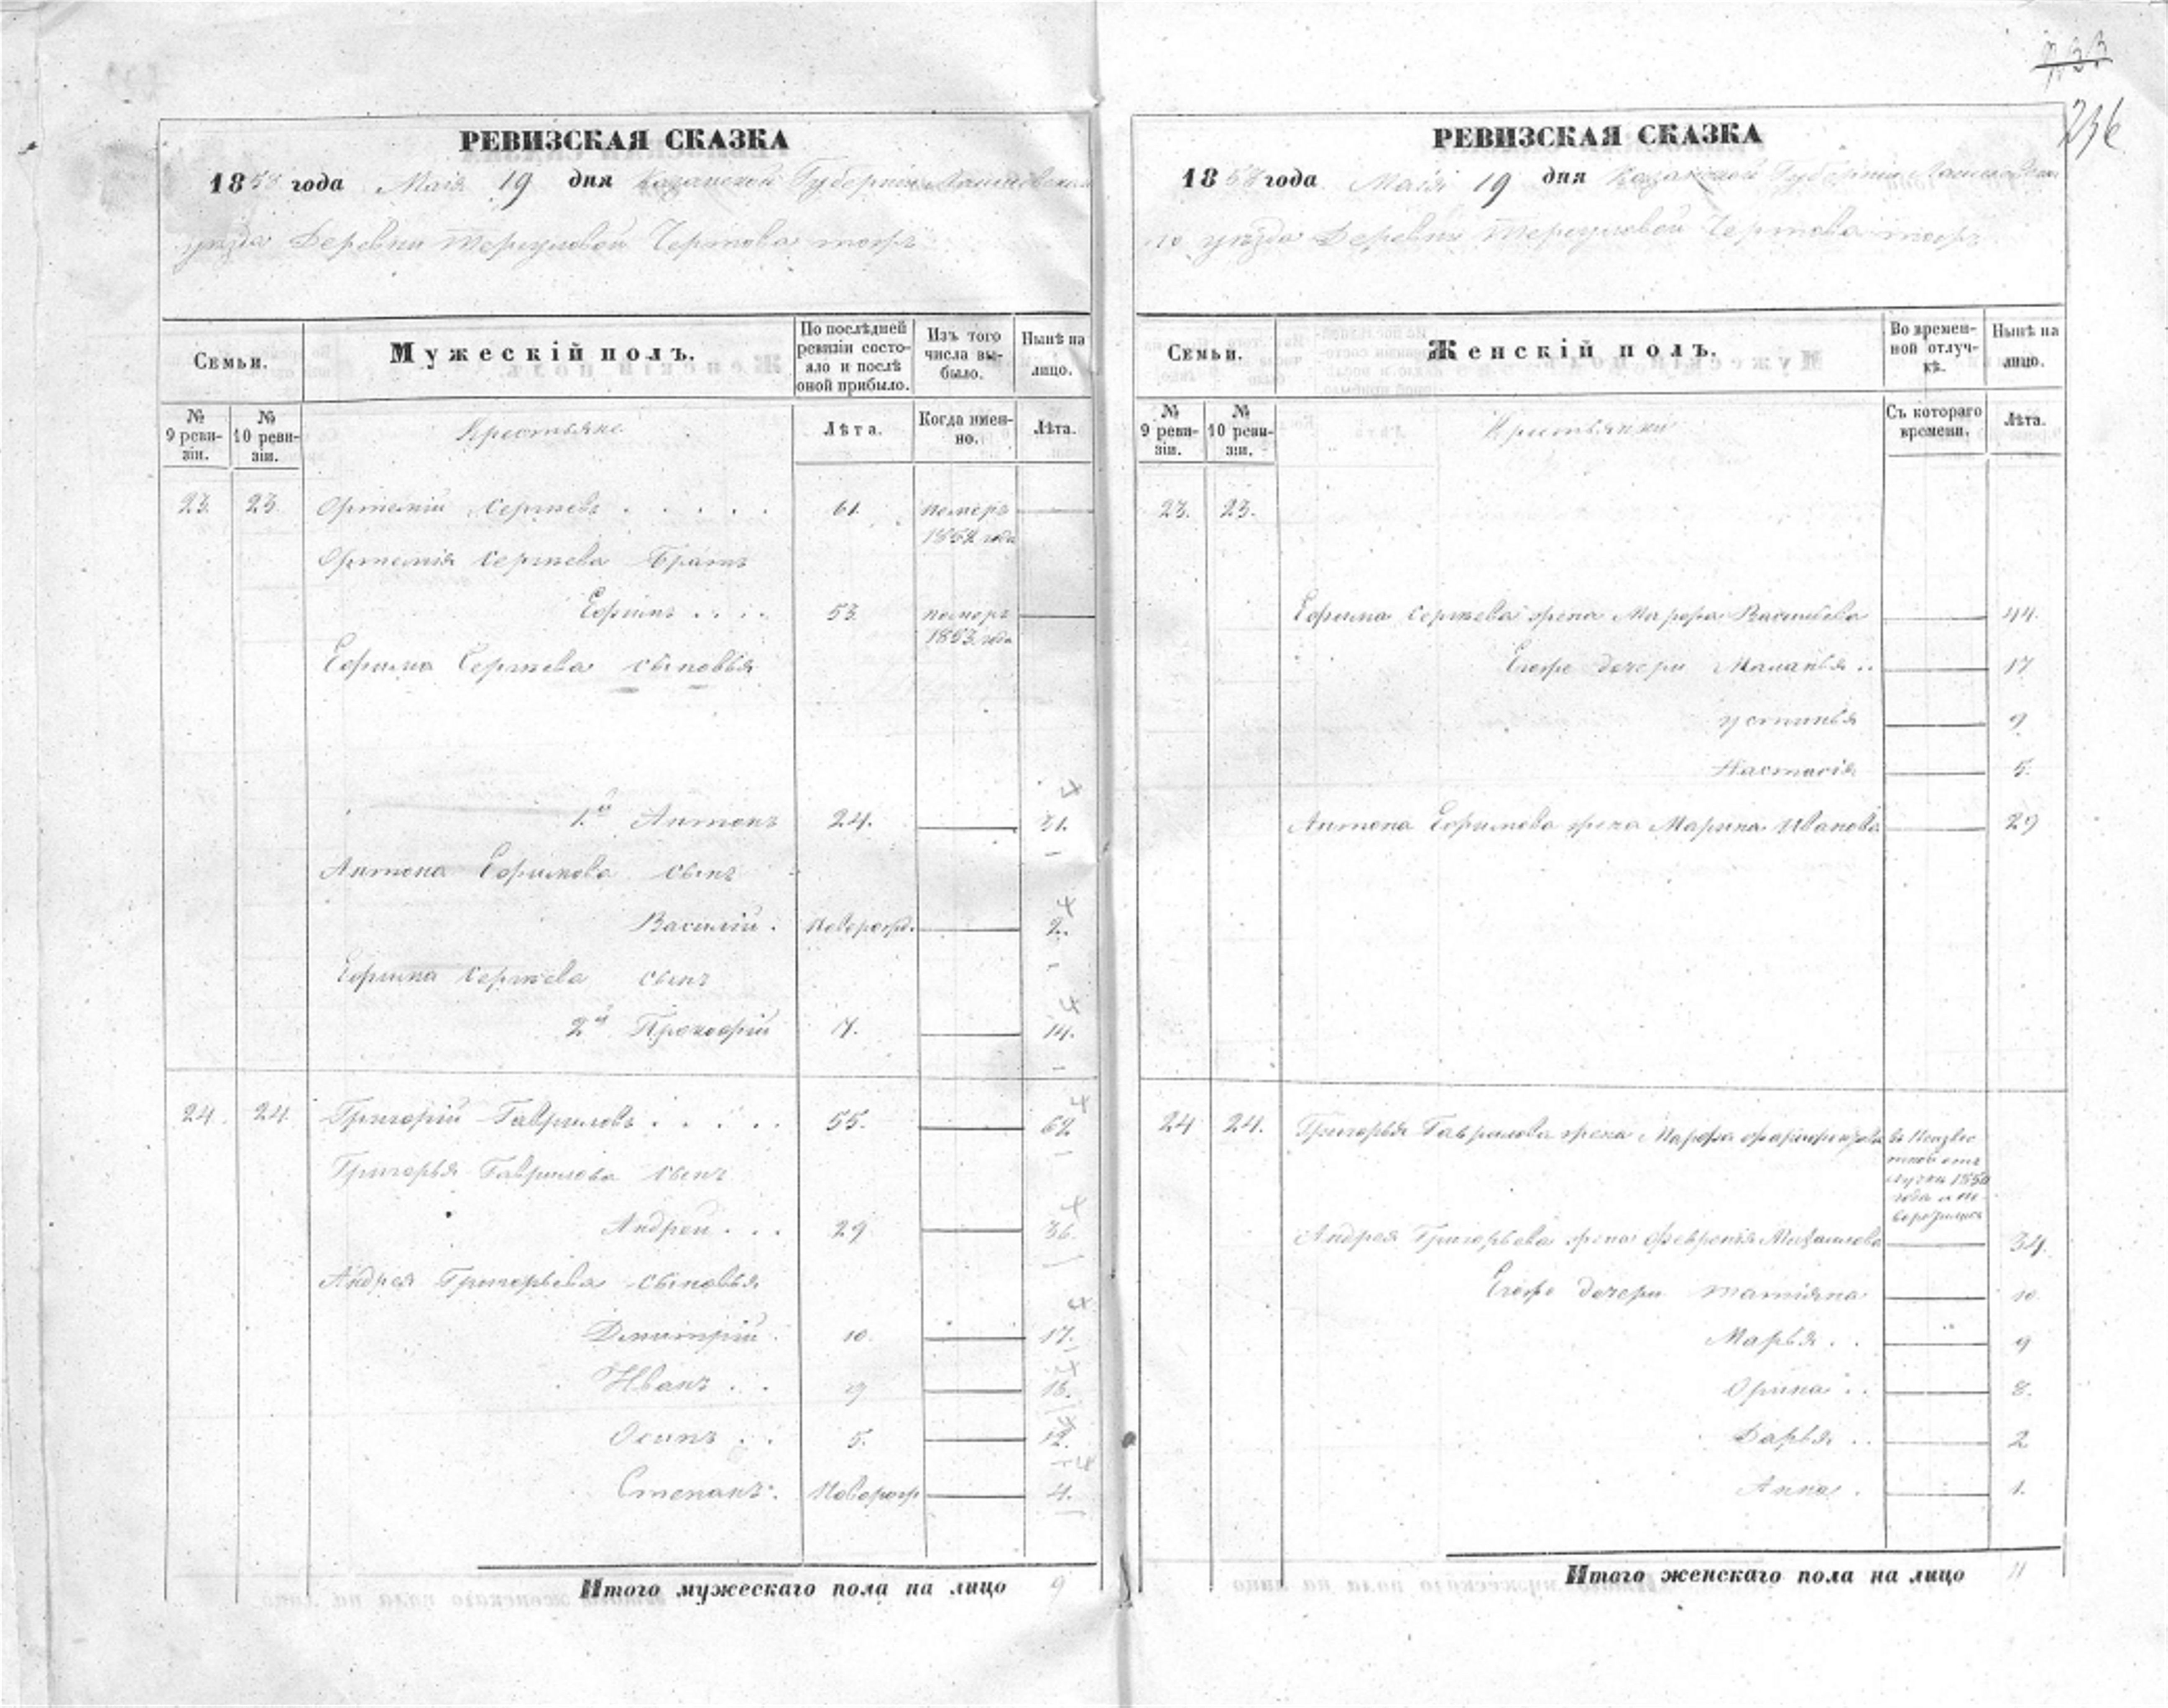 233
236
РЕВИЗСКАЯ СКАЗКА
1858 года Маія 19 дня Казанской Губерніи Лаишевскаго
уѣзда Деревни Чертова тожъ
Семьи.
Мужескій полъ.
По послѣдней ревизіи состояло и послѣ оной прибыло.
Изъ того числа выбыло.
Нынѣ на лицо.
№ 9 ревизіи.
№ 10 ревизіи.
Крестьяне
Лѣта.
Когда именно.
Лѣта.
23. 23. Ортемій Сергѣевъ . . . . . 61. померъ
1854 года
Ортемія Сергѣева Братъ
Ефимъ . . . . 53. померъ
1853 года
Ефима Сергѣева сыновья
1й Антонъ 24. 31.
Антона Ефимова сынъ
Василій . Новорожд. 2.
Ефима Сергѣева сынъ
2й Прокофій 7. 14.
24. 24. Григорій Гавриловъ . . . . . 55. 62
Григорья Гаврилова сынъ
Андрей . . . 29 36.
Андрея Григорьева сыновья
Дмитрій . 10. 17.
Иванъ . . 9 16.
Осипъ . . 5. 12.
Степанъ . Новорож 4.
Итого мужескаго пола на лицо 9
РЕВИЗСКАЯ СКАЗКА
1858 года Маія 19 дня Казанской Губерніи Лаишевска
го уѣзда Деревни Чертова тожъ
Семьи.
Женскій полъ.
Во временной отлучкѣ.
Нынѣ на лицо.
№ 9 ревизіи.
№ 10 ревизіи.
Крестьянки
Съ котораго времени.
Лѣта.
23. 23.
Ефима Сергѣева жена Марфа Васильева 44.
Егожъ дочери Маланья .. 17
Устинья 9
Настасія 5.
Антона Ефимова жена Марина Иванова 29
24 24. Григорья Гаврилова жена Марфа въ Неизвес
тной от
лучки 1850
года и не
Андрея Григорьева жена Февронія Михайлова 34.
Егожъ дочери Татіяна 10
Марья . . 9
Орина . . 8.
Дарья .. 2
Анна . 1.
Итого женскаго пола на лицо 11